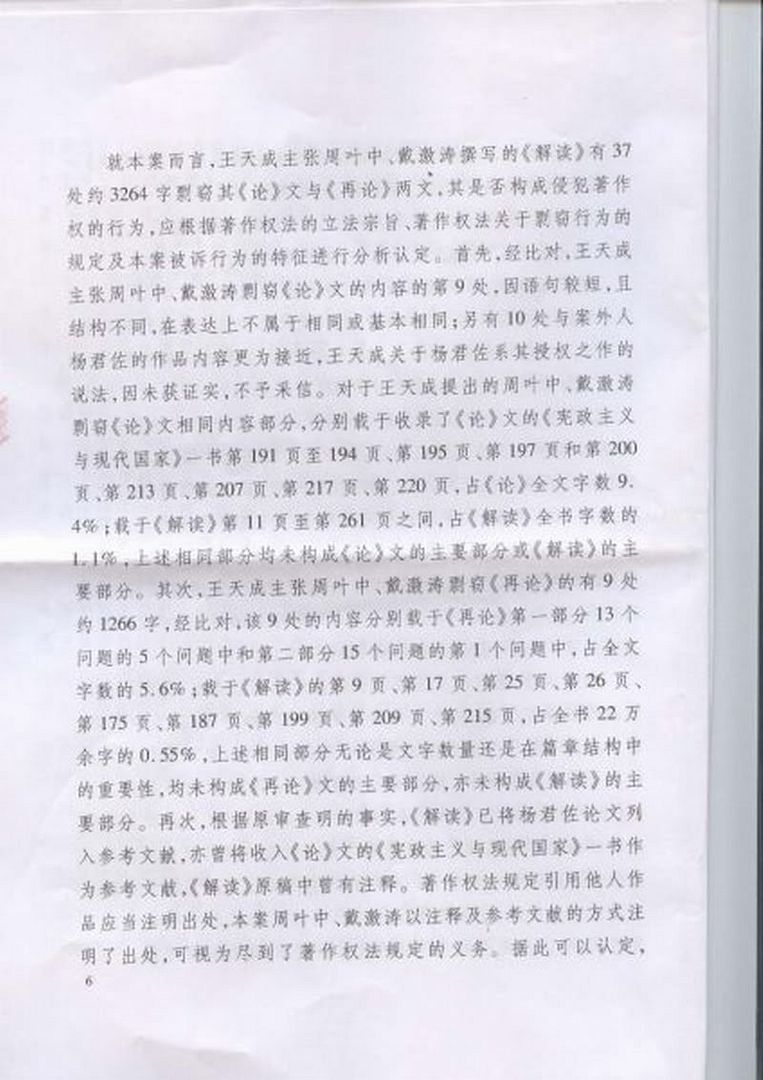 就本案而言，王天成主张周叶中、戴激涛撰写的《解读》有37
处约3264字剽窃其《论》文与《再论》两文，其是否构成侵犯著作
权的行为，应根据著作权法的立法宗旨、著作权法关于剽窃行为的
规定及本案被诉行为的特征进行分析认定。首先，经比对，王天成
主张周叶中、戴激涛剽窃《论》文的内容的第9处，因语句较短，且
结构不同，在表达上不属于相同或基本相同；另有10处与案外人
杨君佐的作品内容更为接近，王天成关于杨君佐系其授权之作的
说法，因未获证实，不予采信。对于王天成提出的周叶中、戴激涛
剽窃《论》文相同内容部分，分别载于收录了《论》文的《宪政主义
与现代国家》一书第191页至194页、第195页、第197页和第200
页、第213页、第207页、第217页、第220页，占《论》全文字数9.
4%；载于《解读》第11页至第261页之间，占《解读》全书字数的
1.1%，上述相同部分均未构成《论》文的主要部分或《解读》的主
要部分。其次，王天成主张周叶中、戴激涛剽窃《再论》的有9处
约1266字，经比对，该9处的内容分别载于《再论》第一部分13个
问题的5个问题中和第二部分15个问题的第1个问题中，占全文
字数的5.6%；载于《解读》的第9页、第17页、第25页、第26页、
第175页、第187页、第199页、第209页、第215页，占全书22万
余字的0.55%，上述相同部分无论是文字数量还是在篇章结构中
的重要性，均未构成《再论》文的主要部分，亦未构成《解读》的主
要部分。再次，根据原审查明的事实，《解读》已将杨君佐论文列
入参考文献，亦曾将收入《论》文的《宪政主义与现代国家》一书作
为参考文献，《解读》原稿中曾有注释。著作权法规定引用他人作
品应当注明出处，本案周叶中、戴激涛以注释及参考文献的方式注
明了出处，可视为尽到了著作权法规定的义务。据此可以认定，
6